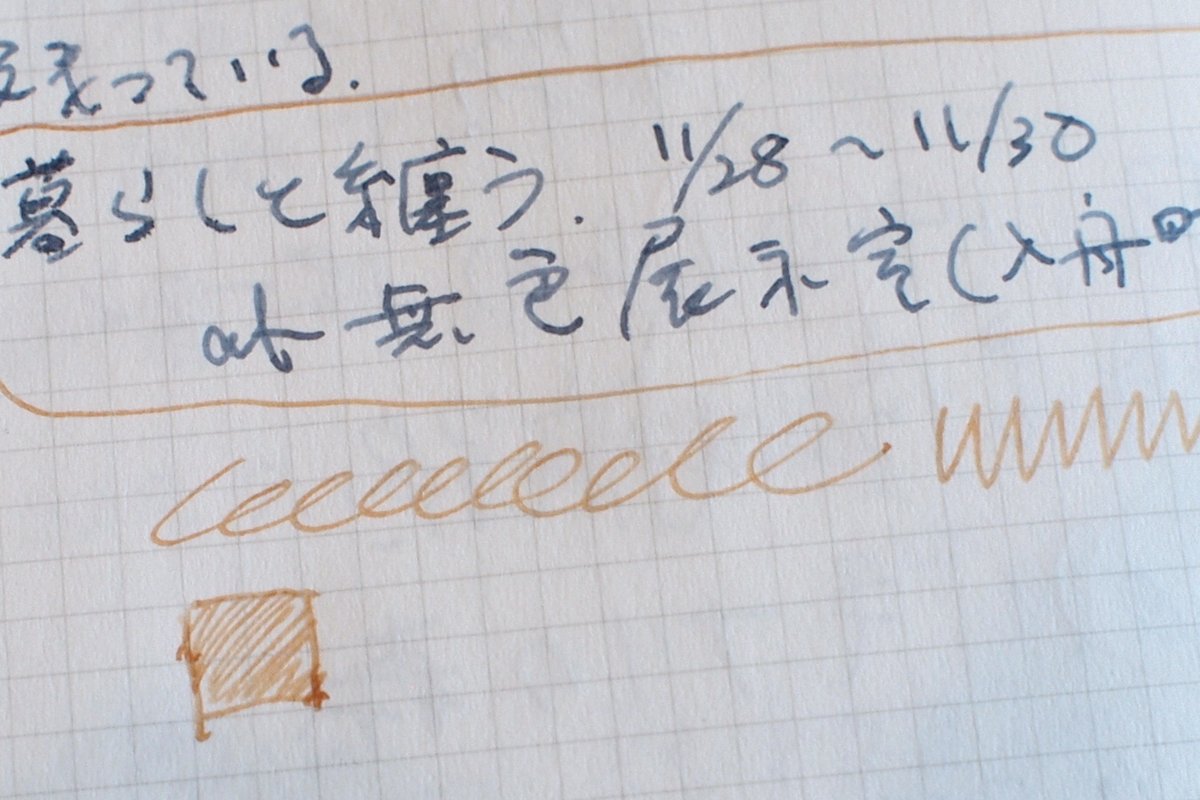 っている.
暮らしと纏う. 11/28 ~ 11/30
at 無色展示室(入舟